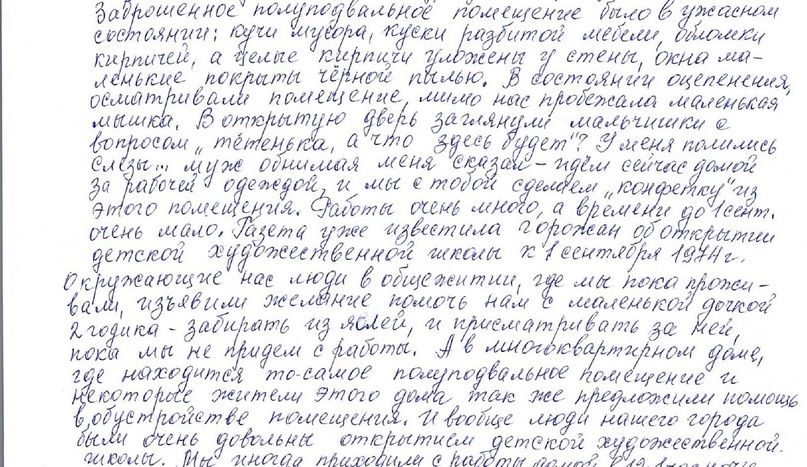 Заброшенное полуподвальное помещение было в ужасном
состоянии: кучи мусора, куски разбитой мебели, обломки
кирпичей, а целые кирпичи уложены у стены, окна ма-
ленькие покрыты чёрной пылью. В состоянии оцепенения,
осматривали помещение, мимо нас пробежала маленькая
мышка. В открытую дверь заглянули мальчишки с
вопросом „тётенька, а что здесь будет"? У меня полились
слезы... муж обнимая меня сказал – идём сейчас домой
за рабочей одеждой, и мы с тобой сделаем „конфетку" из
этого помещения. Работы очень много, а времени до 1 сент.
очень мало. Газета уже известила горожан об открытии
детской художественной школы к 1 сентября 1974 г.
Окружающие нас люди в общежитии, где мы пока прожи-
вали, изъявили желание помочь нам с маленькой дочкой
2 годика - забирать из яслей, и присматривать за ней,
пока мы не придем с работы. А в многоквартирном доме,
где находится то-самое полуподвальное помещение и
некоторые жители этого дома так же предложили помощь
в обустройстве помещения. И вообще люди нашего города
были очень довольны открытием детской художественной
школы. Мы иногда приходили с работы домой в 12